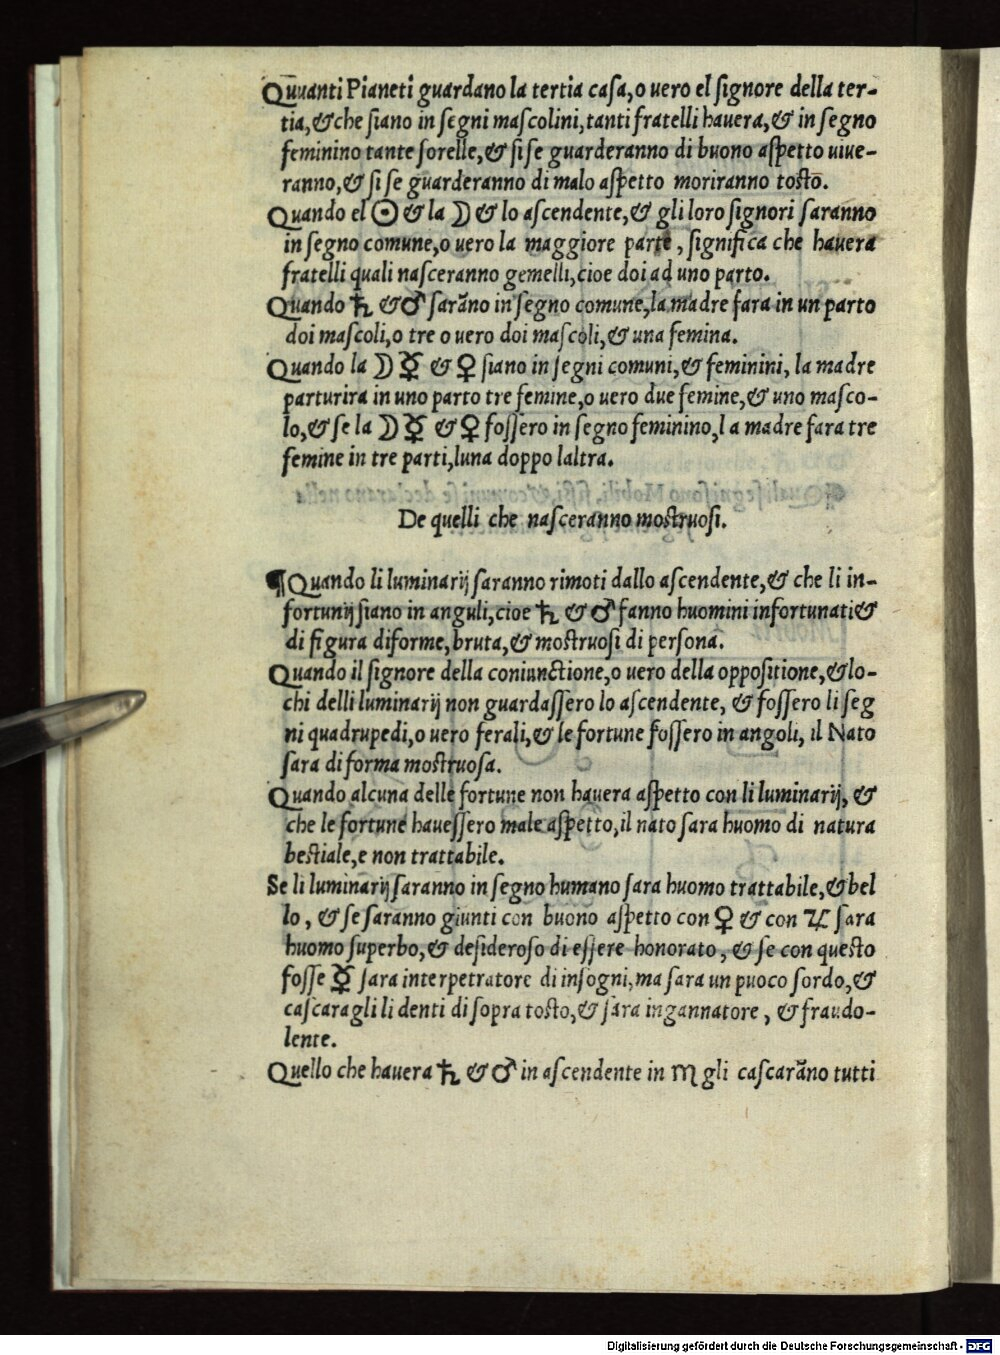 Quuanti Pianeti guardano la tertia casa, o uero el signore della ter-
tia, & che siano in segni mascolini, tanti fratelli hauera, & in segno
feminino tante sorelle, & si se guarderanno di buono aspetto uiue-
ranno, & si se guarderanno di malo aspetto moriranno tosto.
Quando el ☉ & la ☽ & lo ascendente, & gli loro signori saranno
in segno comune, o uero la maggiore parte, significa che hauera
fratelli quali nasceranno gemelli, cioe doi ad uno parto.
Quando ♄ & ♂ sarãno in segno comune, la madre fara in un parto
doi mascoli, o tre o uero doi mascoli, & una femina.
Quando la ☽ ☿ & ♀ siano in segni comuni, & feminini, la madre
parturira in uno parto tre femine, o uero due femine, & uno masco-
lo, & se la ☽ ☿ & ♀ fossero in segno feminino, la madre fara tre
femine in tre parti, luna doppo laltra.
De quelli che nasceranno mostruosi.
¶ Quando li luminarij saranno rimoti dallo ascendente, & che li in-
fortunij siano in anguli, cioe ♄ & ♂ fanno huomini infortunati &
di figura diforme, bruta, & mostruosi di persona.
Quando il signore della coniunctione, o uero della oppositione, & lo-
chi delli luminarij non guardassero lo ascendente, & fossero li seg
ni quadrupedi, o uero ferali, & le fortune fossero in angoli, il Nato
sara di forma mostruosa.
Quando alcuna delle fortune non hauera aspetto con li luminarij, &
che le fortune hauessero male aspetto, il nato sara huomo di natura
bestiale, e non trattabile.
Se li luminarij saranno in segno humano sara huomo trattabile, & bel
lo, & se saranno giunti con buono aspetto con ♀ & con ♃ sara
huomo superbo, & desideroso di essere honorato, & se con questo
fosse ☿ sara interpetratore di insogni, ma sara un puoco sordo, &
cascaragli li denti di sopra tosto, & sara ingannatore, & fraudo-
lente.
Quello che hauera ♄ & ♂ in ascendente in ♏ gli cascarãno tutti
Digitalisierung gefördert durch die Deutsche Forschungsgemeinschaft - DFG